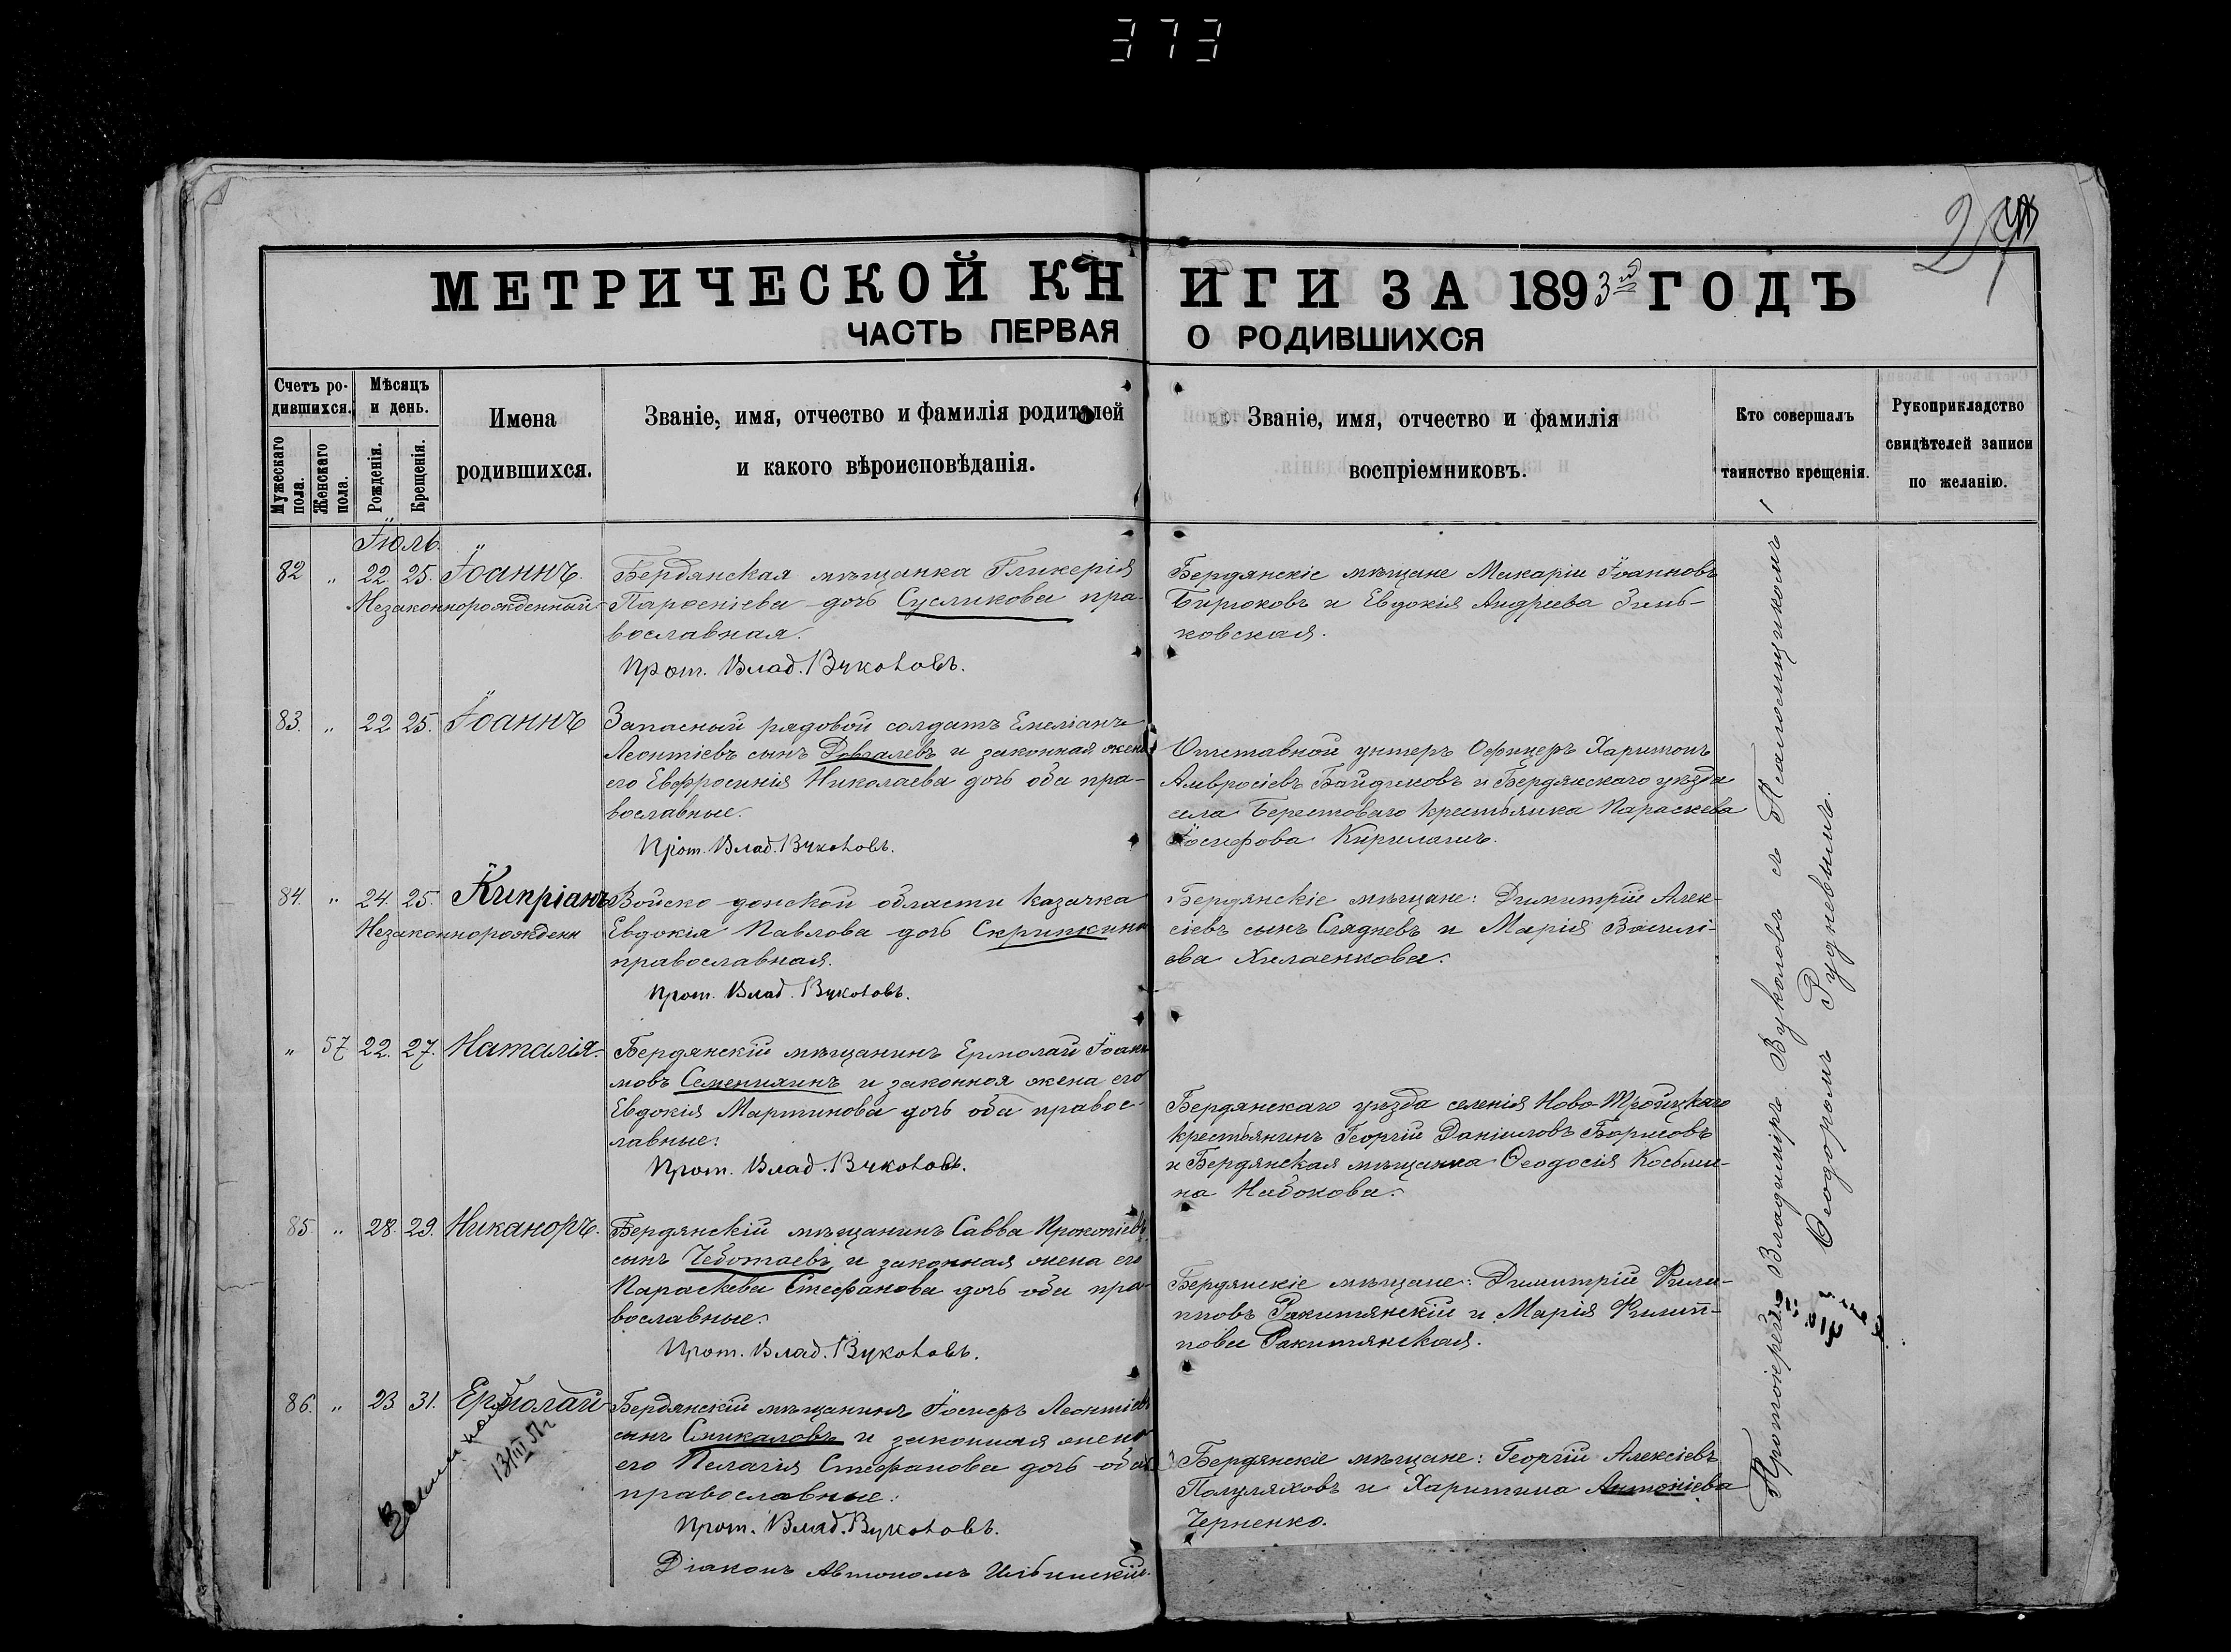 373
МЕТРИЧЕСКОЙ КНИГИ ЗА 1893й ГОДЪ
ЧАСТЬ ПЕРВАЯ О РОДИВШИХСЯ
Счетъ родившихся.
Мужескаго пола.
Женскаго пола.
Мѣсяцъ и день.
Рожденія.
Крещенія.
Имена
родившихся.
Званіе, имя, отчество и фамилія родителей
и какого вѣроисповѣданія.
Званіе, имя, отчество и фамилія
воспріемниковъ.
Кто совершалъ
таинство крещенія.
Рукоприкладство
свидѣтелей записи
по желанію.
Іюль.
82 " 22. 25. Іоаннъ.
Незаконнорожденный
Бердянская мѣщанка Гликерія
дочь Сусликова пра-
вославная.
Прот. Влад. Вуколовъ.
Бердянскіе мѣщане Макарій Іоанновъ
Бирюковъ и Евдокія Андреева Зинь-
ковская.
83. " 22 25. Іоаннъ
Запасный рядовой солдатъ Емеліанъ
Леонтіевъ сынъ Довгалевъ и законная жена
его Евфросинія Николаева дочь оба пра-
вославные.
Прот. Влад. Вуколовъ.
Отставной унтеръ Офицеръ Харитонъ
Амвросіевъ и Бердянскаго уѣзда
села Берестоваго крестьянка Параскева
Іосифова
84. " 24. 25. Кипріанъ
Незаконнорожденн
Войско-донской области казачка
Евдокія Павлова дочь Скрипкина
православная.
Прот. Влад. Вуколовъ.
Бердянскіе мѣщане: Димитрій Алек-
сіевъ сынъ Слядневъ и Марія Василі-
ева
" 57 22. 27. Наталія.
Бердянскій мѣщанинъ Ермолай Іоан-
новъ и законная жена его
Евдокія Мартинова дочь оба правос-
лавные.
Прот. Влад. Вуколовъ.
Бердянскаго уѣзда селенія Ново-Троицкаго
крестьянинъ Георгій Даніиловъ Борисовъ
и Бердянская мѣщанка Ѳеодосія Косьми-
на Набокова.
85. " 28. 29. Никаноръ.
Бердянскій мѣщанинъ Савва Прокопіевъ
сынъ Чеботаевъ и законная жена его
Параскева Стефанова дочь оба пра-
вославные.
Прот. Влад. Вуколовъ.
Бердянскіе мѣщане: Димитрій Фили-
пповъ Ракитянскій и Марія Филип-
пова Ракитянская.
86. " 23 31. Ермолай
Бердянскій мѣщанинъ Іосифъ Леонтіевъ
сынъ Сникаловъ и законная жена
его Пелагія Стефанова дочь оба
православные.
Прот. Влад. Вуколовъ.
Діаконъ Автономъ
Бердянскіе мѣщане: Георгій Алексіевъ
Полуляховъ и Харитина Антоніева
Черненко.
Протоіереемъ Владиміръ Вуколовъ съ Псаломщикомъ
Ѳеодоромъ Рудневымъ.